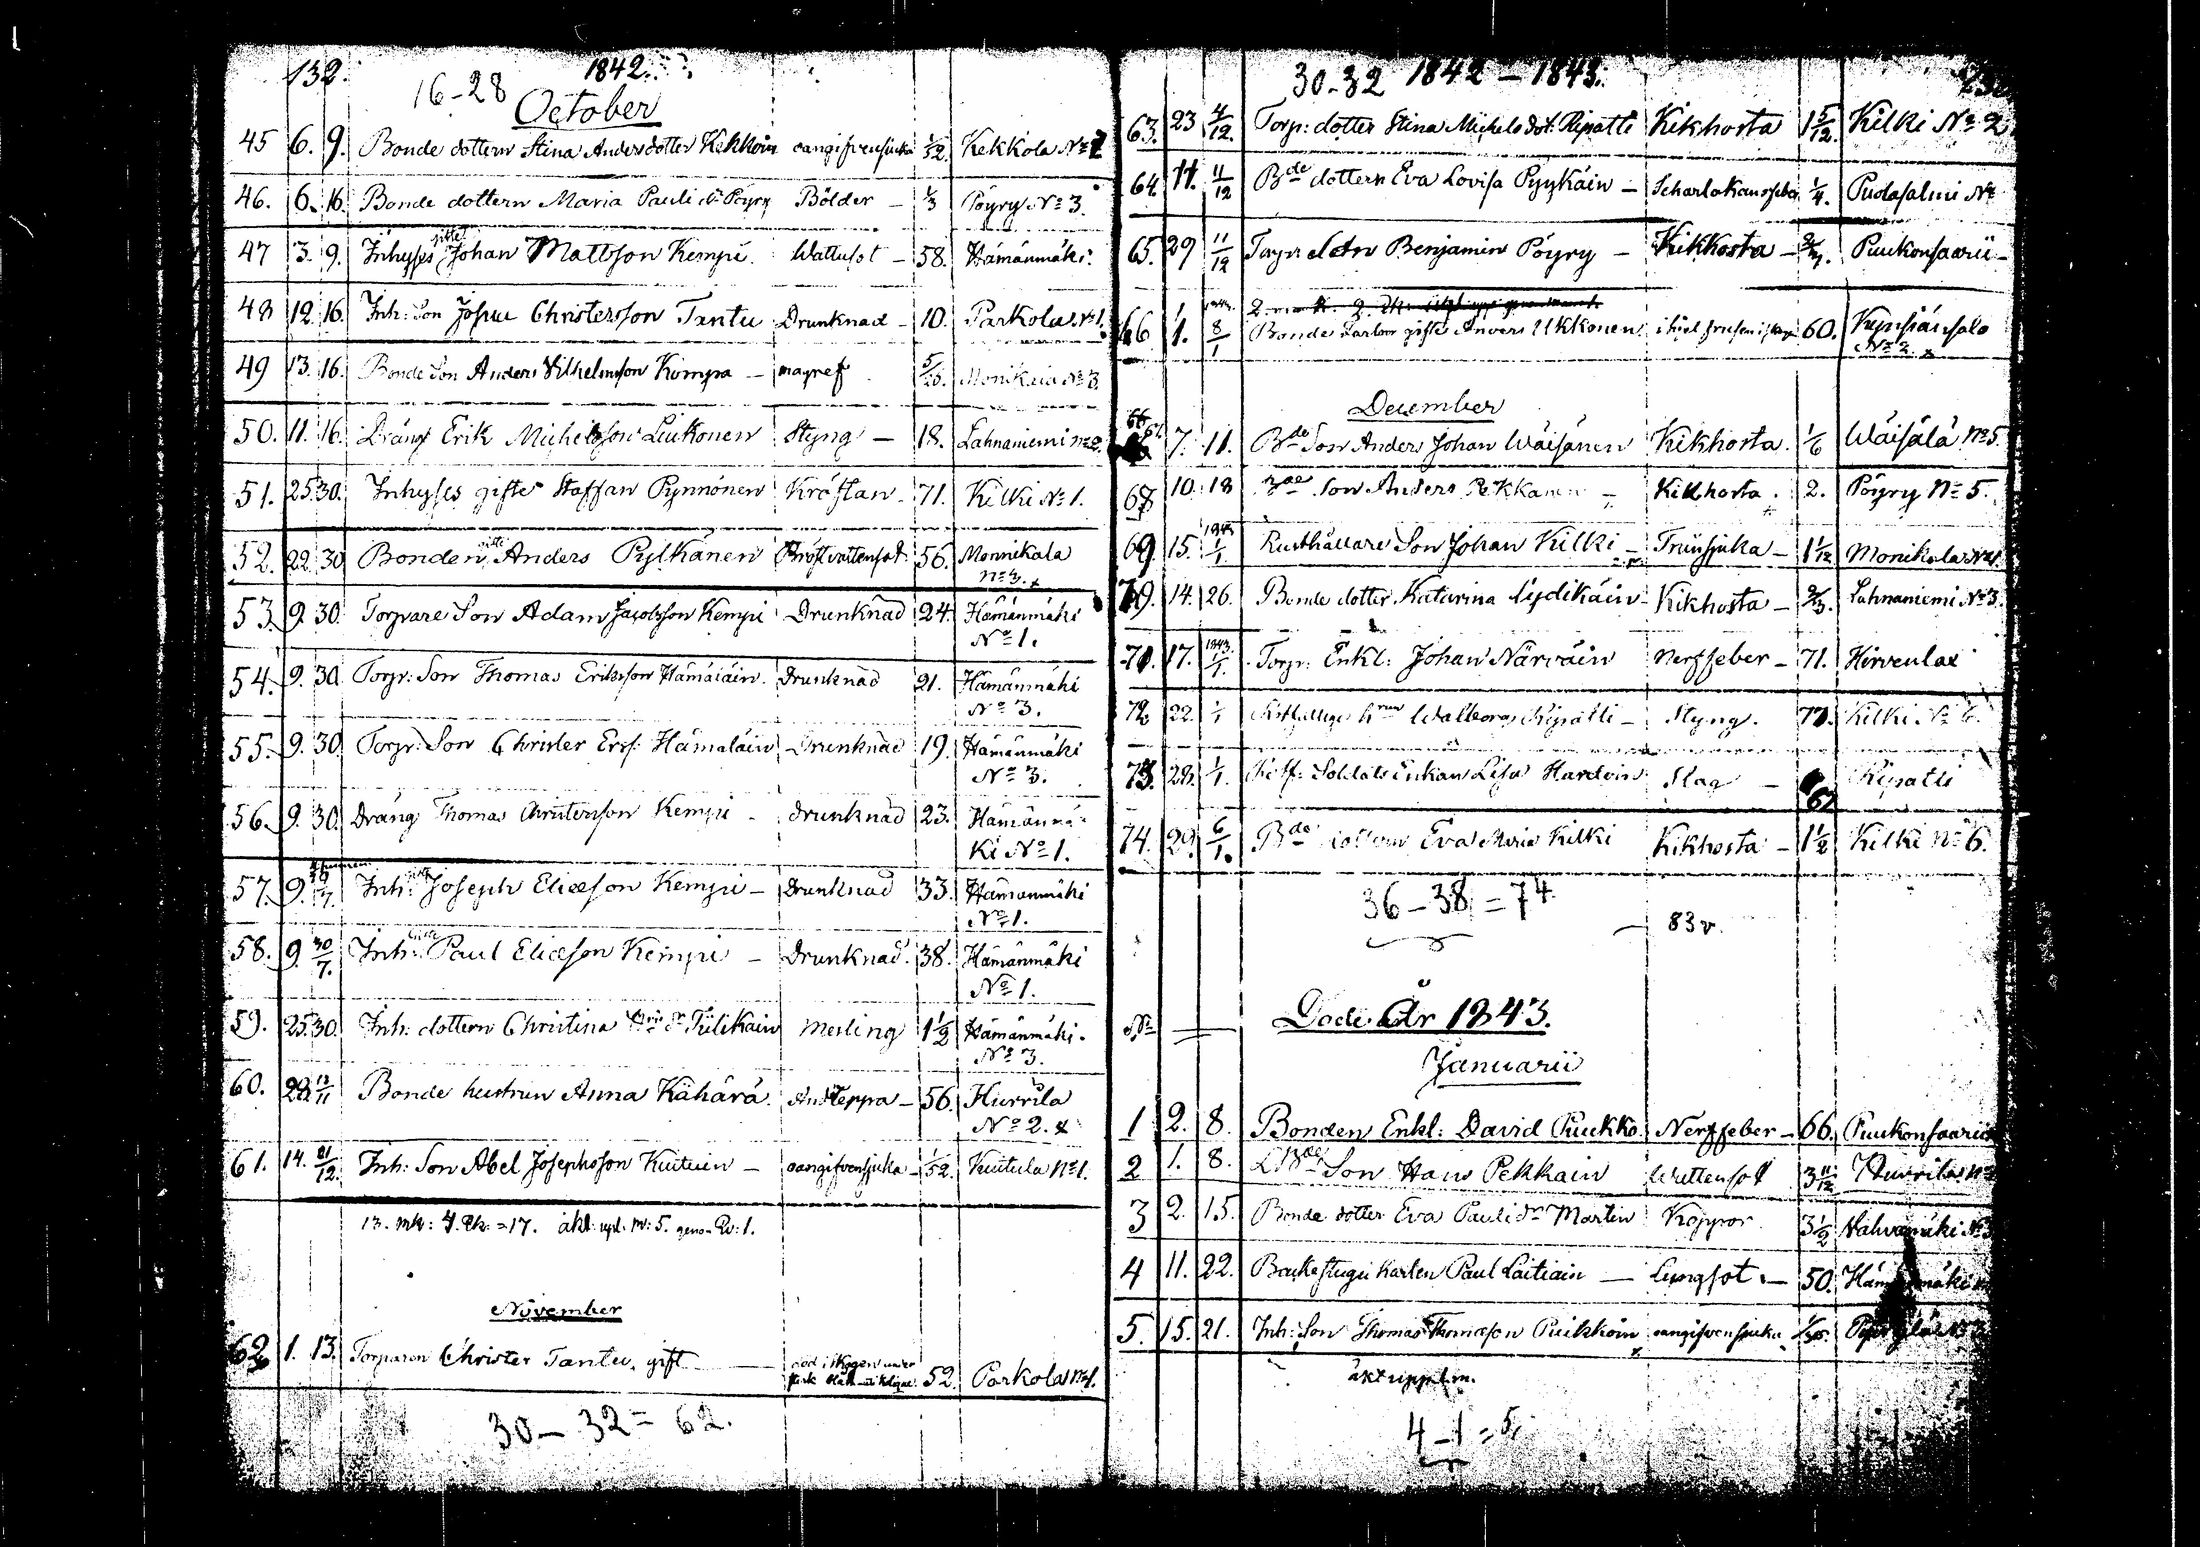 132.
1842.
16-28
October
45 6. 9. Bonde dottern Stina Andersdotter Kekkoin oangifven sjuka 1/52. Kekkola No
46. 6. 16. Bonde dottern Maria Pauli dr Pöyry Bölder - 1/3 Pöyry No 3.
47 3. 9. Inhyses gifte Johan Mattsson Kempi. Wattusot - 58. Hämänmäki.
48 12 16. Inh: Son Johan Christersson Tantu Drunknad - 10. Parkola No 1.
49 13. 16. Bonde Son Anders Vilhelmsson Kompa - magref Monikala No 3
50. 11. 16. Dräng Erik Michelsson Liukonen Styng - 18. Lahnaniemi No 2.
51. 25. 30. Inhyses gifte Staffan Pynnönen Kräftan - 71. Kilki No 1.
52. 22. 30 Bonden gifte Anders Pylkänen Bröstvattensot 56. Monnikala
No 3. x
53. 9. 30. Torpare Son Adam Jacobsson Kempi Drunknad 24. Hämänmäki
No 1.
54. 9. 30. Torpr: Son Thomas Eriksson Hämäläin. Drunknad 21. Hämänmäki
No 3.
55. 9. 30. Torpr: Son Christer Ersf. Hämäläin Drunknad 19. Hämänmäki
No 3.
56. 9. 30. Dräng Thomas Christersson Kempi - drunknad 23. Hämänmä-
ki No 1.
57. 9. Inh: gifte Joseph Eliasson Kempi - Drunknad 33. Hämänmäki
No 1.
58. 9. 30/7. Inh: gifte Paul Eliasson Kempi - Drunknad. 38. Hämänmäki
No 1.
59. 25. 30. Inh: dottern Christina Tulikain Mesling 1 1/2 Hämänmäki.
No 3.
60. 29. 13/11 Bonde hustrun Anna Kähärä. Andteppa - 56. Hurrila
No 2. x
61. 14. 21/12. Inh: Son Abel Josephsson Kuituin - oangifvensjuka - 1/52. Kuitula No 1.
13. mk: 4. Qk: = 17. äkt: upl: m: 5. genom Qv: 1.
November
62 1. 13. Torparen Christer Tantu, gift - död i skogen 52. Parkola No 1.
30 - 32 = 62.
30-32 1842 - 1843.
63. 23 4/12. Torp: dotter Stina Michels dot: Ripatti Kikhosta 1 5/12. Kilki No 2
64. 11. 11/12 Bde dottern Eva Lovisa Pyykäin - Scharlakansfeber 1/4. Pudasalmi No
65. 29 11/12 Torpr Son Benjamin Pöyry - Kikhosta - Puukonsaari -
66 1. 8/1 Bonde gifte Anders Ukkonen 60. Kynsiänsalo
No 2. x
December
7. 11. Bde Son Anders Johan Wäisänen Kikhosta. 1/6 Wäisälä No 5.
10. 18 Bde Son Anders Pekkanen - Kikhosta. 2. Pöyry No 5.
69 15. 1843 1/1 Rusthållare Son Johan Kilki - Trånsjuka - 1 1/12 Monikala No 1.
14. 26. Bonde dotter Katarina Lydikäin - Kikhosta - 2/3. Lahnaniemi No 3.
71. 17. 1843. 1/1. Torpr: Enkl: Johan Närväin Nerffeber - 71. Hirvenlax
72 22. 1/1 Rotfattiga hrun Walborg Ripatti - Styng. Kilki No 6.
73. 28. 1/1. Soldats Enkan Lisa Hardoin Slag - 67 Ripatti
74. 29. 6/1. Bde dottern Eva Maria Kilki Kikhosta - 1 1/2 Kilki No 6.
36 - 38 = 74.
83 v.
No
Döde År 1843.
Januarii
1 2. 8. Bonden Enkl: David Puukko. Nerffeber - 66. Puukonsaari
2 1. 8. Bde Son Hans Pekkain Wattensot 3 11/12 Hurrila No
3 2. 15. Bonde dotter Eva Pauli dr Martin Koppor 3 1/2 Nahvamäki No 3
4 11. 22. Backstugu karlen Paul Laitiain - Lungsot - 50. Hämänmäki
5. 15. 21. Inh: Son Thomas Thomasson Puikkoin oangifven sjuka
äkt uppl. m.
4 - 1 = 5,